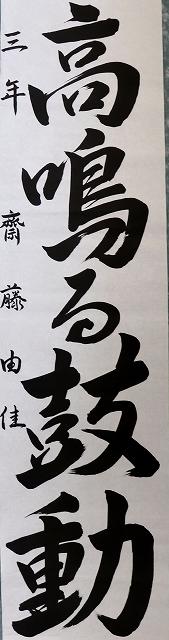 高鳴る鼓動
三年 齋藤由佳